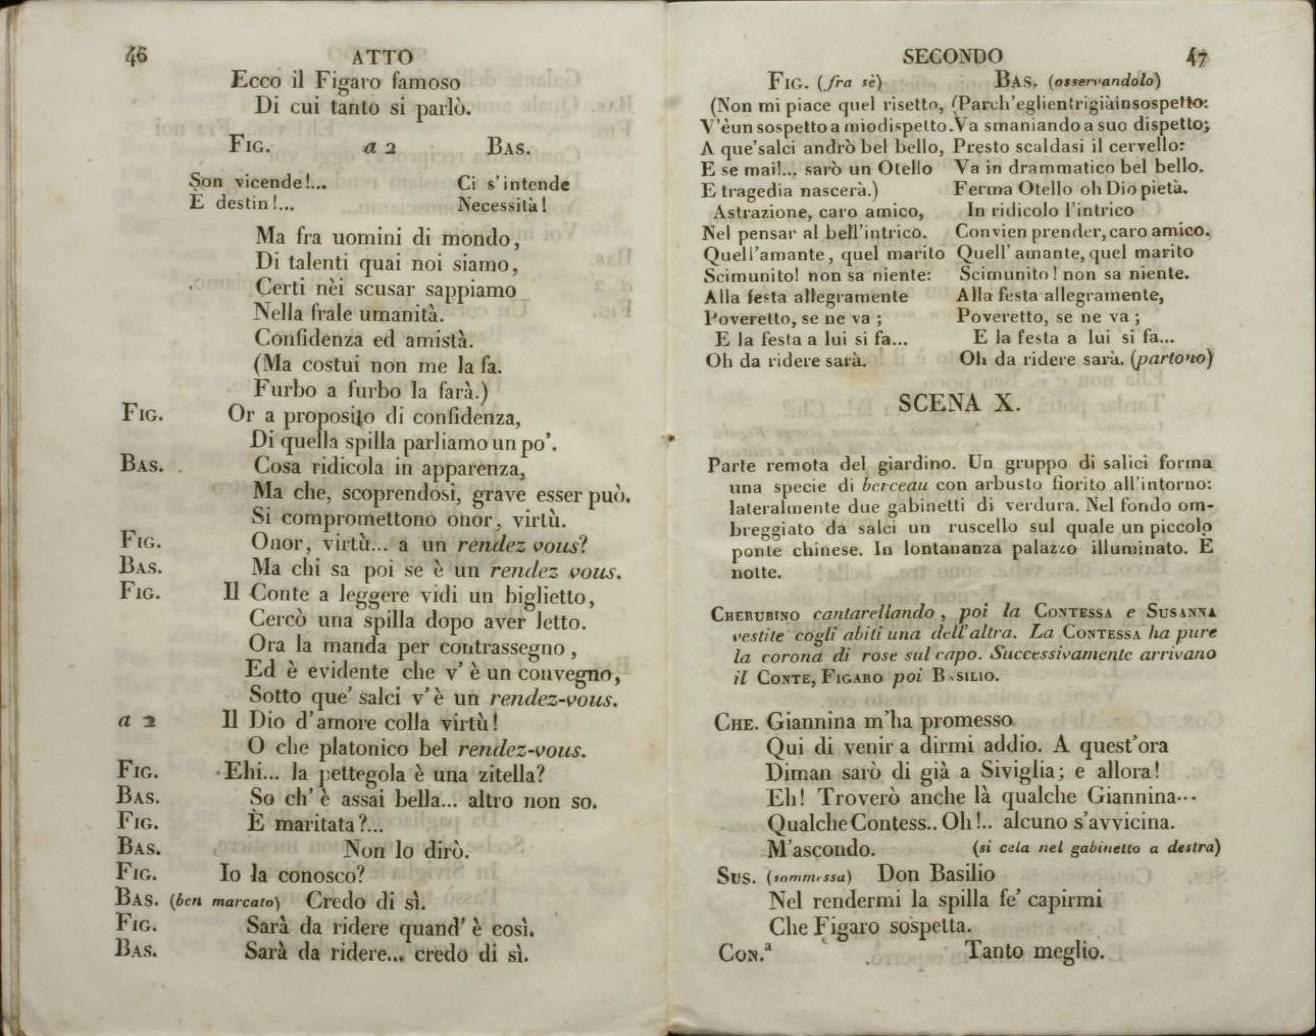 46
ATTO
Ecco il Figaro famoso
Di cui tanto si parlò.
FIG. a 2 BAS.
Son vicende!... Ci s'intende
È destin!... Necessità!
Ma fra uomini di mondo,
Di talenti quai noi siamo,
Certi nèi scusar sappiamo
Nella frale umanità.
Confidenza ed amistà.
(Ma costui non me la fa.
Furbo a furbo la farà.)
FIG. Or a proposito di confidenza,
Di quella spilla parliamo un po'.
BAS. Cosa ridicola in apparenza,
Ma che, scoprendosi, grave esser può.
Si compromettono onor, virtù.
FIG. Onor, virtù... a un rendez vous?
BAS. Ma chi sa poi se è un rendez vous.
FIG. Il Conte a leggere vidi un biglietto,
Cercò una spilla dopo aver letto.
Ora la manda per contrassegno,
Ed è evidente che v' è un convegno,
Sotto que' salci v'è un rendez-vous.
a 2 Il Dio d'amore colla virtù!
O che platonico bel rendez-vous.
FIG. Ehi... la pettegola è una zitella?
BAS. So ch' è assai bella... altro non so.
FIG. È maritata?...
BAS. Non lo dirò.
FIG. Io la conosco?
BAS. (ben marcato) Credo di sì.
FIG. Sarà da ridere quand' è così.
BAS. Sarà da ridere... credo di sì.
SECONDO
47
FIG. (fra sè)
(Non mi piace quel risetto,
V'è un sospetto a mio dispetto.
A que' salci andrò bel bello,
E se mai!... sarò un Otello
E tragedia nascerà.)
Astrazione, caro amico,
Nel pensar al bell'intrico.
Quell'amante, quel marito
Scimunito! non sa niente:
Alla festa allegramente
Poveretto, se ne va;
E la festa a lui si fa...
Oh da ridere sarà.
BAS. (osservandolo)
(Parch'egli entri già in sospetto:
Va smaniando a suo dispetto;
Presto scaldasi il cervello:
Va in drammatico bel bello.
Ferma Otello oh Dio pietà.
In ridicolo l'intrico
Convien prender, caro amico.
Quell' amante, quel marito
Scimunito! non sa niente.
Alla festa allegramente,
Poveretto, se ne va;
E la festa a lui si fa...
Oh da ridere sarà. (partono)
SCENA X.
Parte remota del giardino. Un gruppo di salici forma
una specie di berceau con arbusto fiorito all'intorno:
lateralmente due gabinetti di verdura. Nel fondo om-
breggiato da salci un ruscello sul quale un piccolo
ponte chinese. In lontananza palazzo illuminato. È
notte.
CHERUBINO cantarellando, poi la CONTESSA e SUSANNA
vestite cogli abiti una dell'altra. La CONTESSA ha pure
la corona di rose sul capo. Successivamente arrivano
il CONTE, FIGARO poi BASILIO.
CHE. Giannina m'ha promesso
Qui di venir a dirmi addio. A quest'ora
Diman sarò di già a Siviglia; e allora!
Eh! Troverò anche là qualche Giannina...
Qualche Contess.. Oh!.. alcuno s'avvicina.
M'ascondo. (si cela nel gabinetto a destra)
SUS. (sommessa) Don Basilio
Nel rendermi la spilla fe' capirmi
Che Figaro sospetta.
CON.ª Tanto meglio.